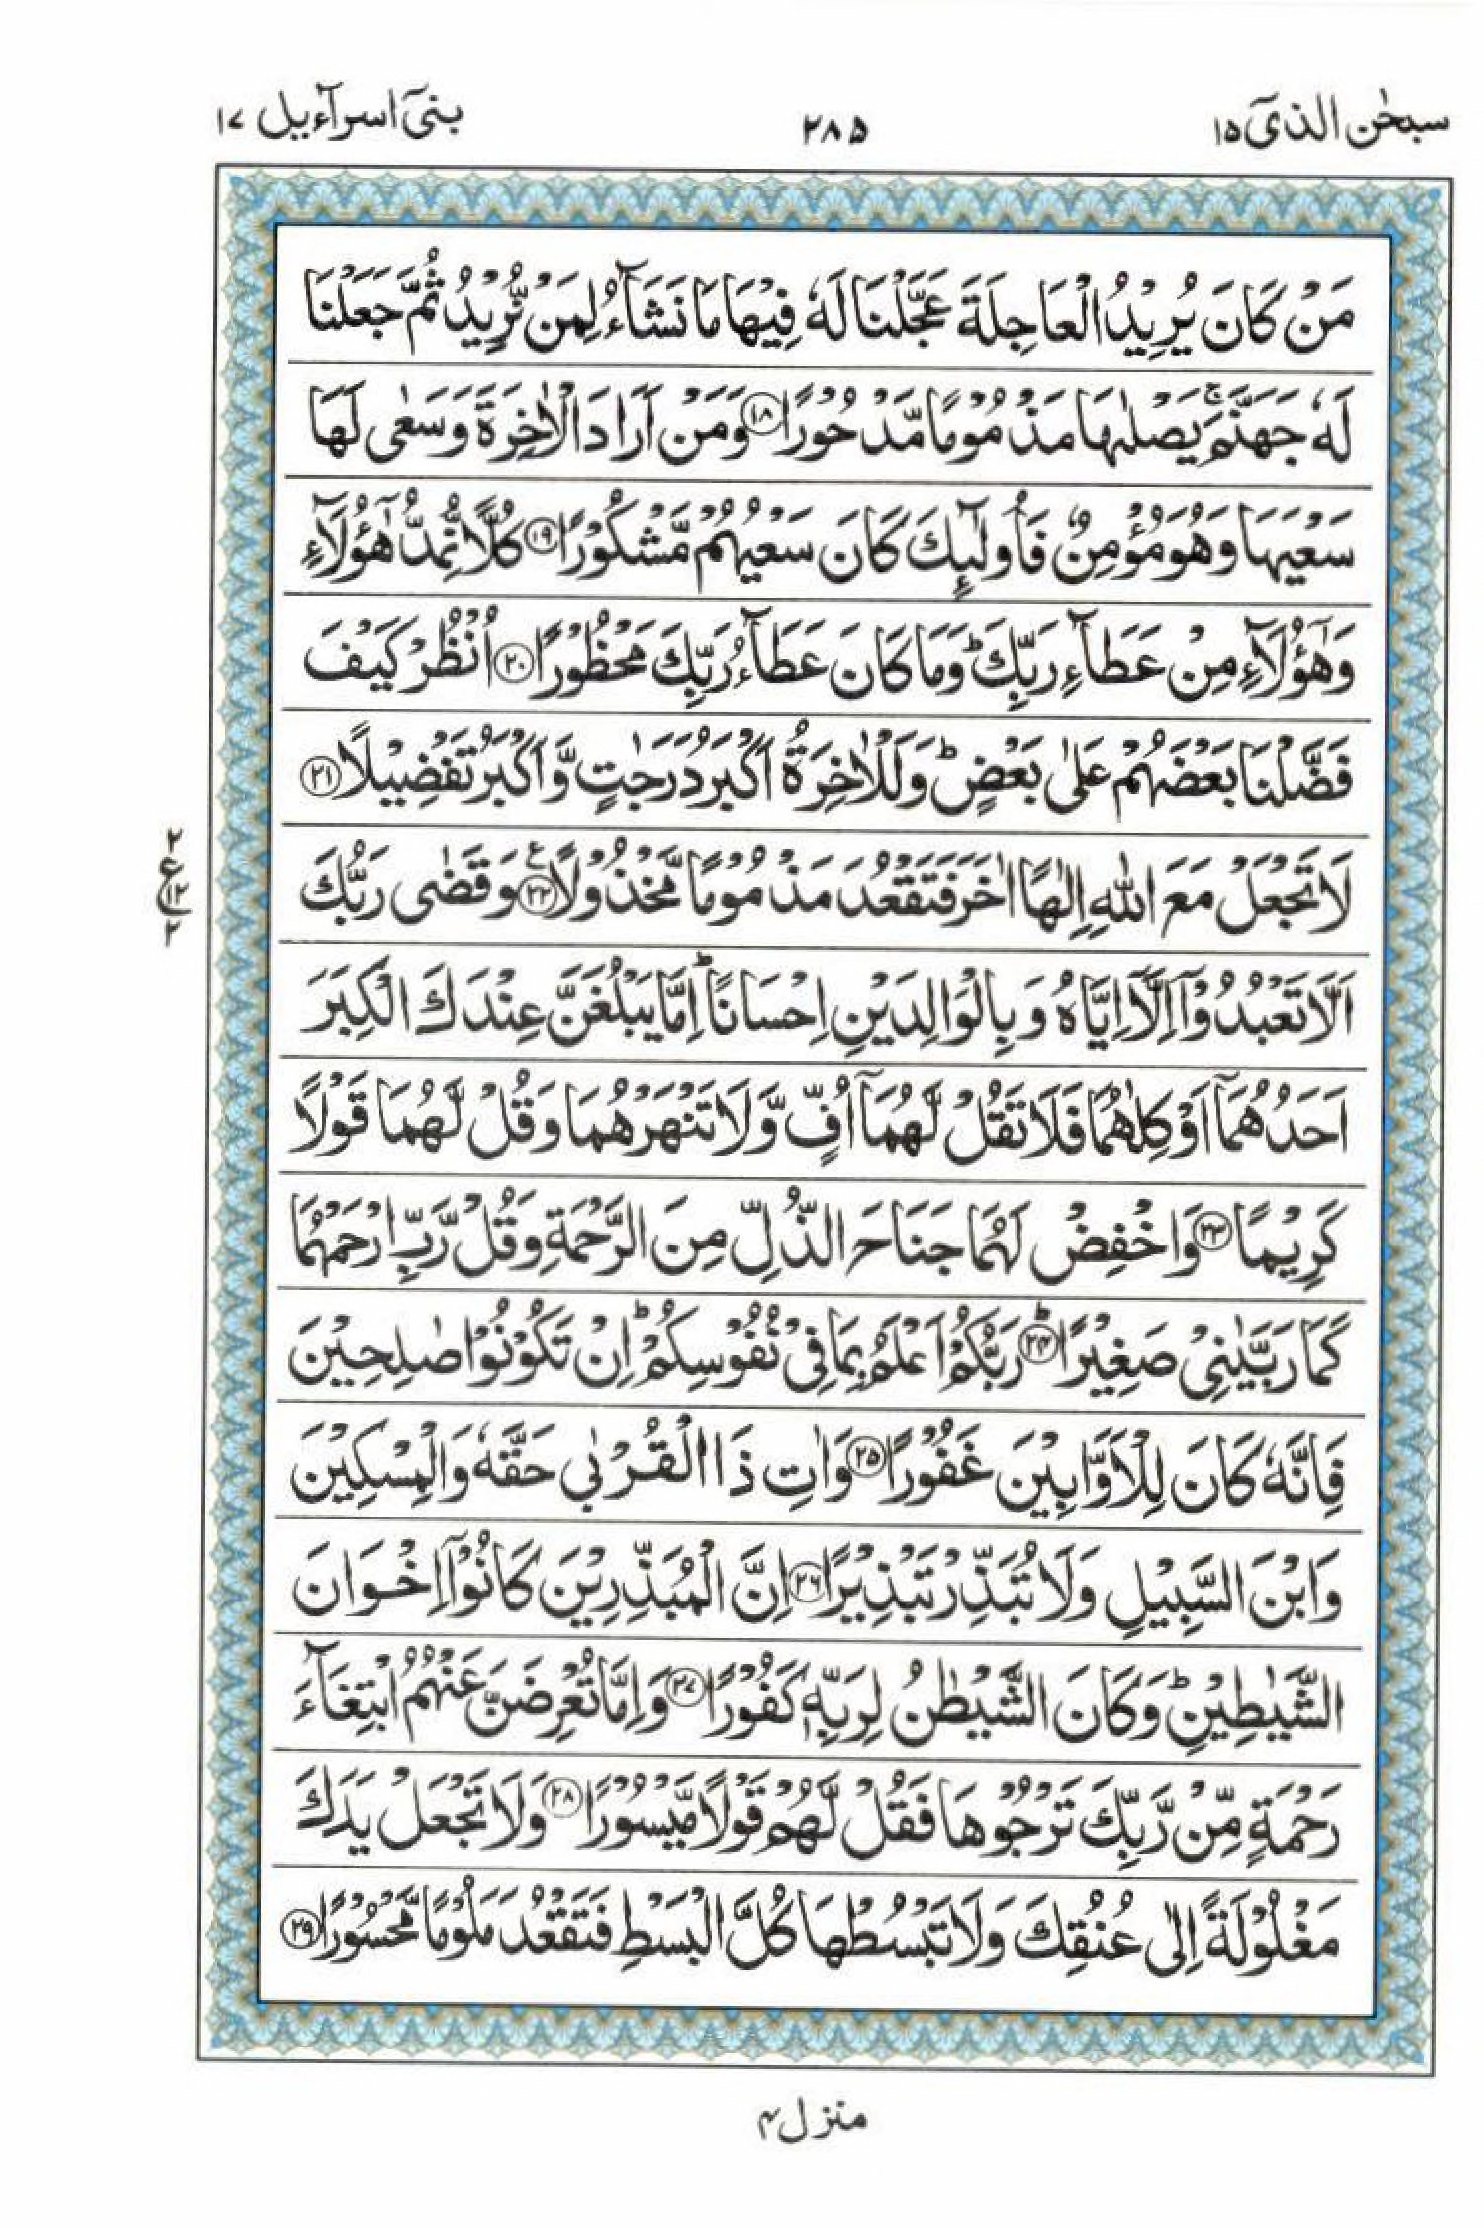 سبحٰن الذیٓ ۱۵
۲۸۵
بنیٓ اسرآءیل ۱۷
مَنْ كَانَ يُرِيْدُ الْعَاجِلَةَ عَجَّلْنَا لَهٗ فِيْهَا مَا نَشَآءُ لِمَنْ نُّرِيْدُ ثُمَّ جَعَلْنَا
لَهٗ جَهَنَّمَ ۚ يَصْلٰىهَا مَذْمُوْمًا مَّدْحُوْرًا ۝۱۸ وَمَنْ اَرَادَ الْاٰخِرَةَ وَسَعٰى لَهَا
سَعْيَهَا وَهُوَ مُؤْمِنٌ فَاُولٰٓئِكَ كَانَ سَعْيُهُمْ مَّشْكُوْرًا ۝۱۹ كُلًّا نُّمِدُّ هٰٓؤُلَآءِ
وَهٰٓؤُلَآءِ مِنْ عَطَآءِ رَبِّكَ ؕ وَمَا كَانَ عَطَآءُ رَبِّكَ مَحْظُوْرًا ۝۲۰ اُنْظُرْ كَيْفَ
فَضَّلْنَا بَعْضَهُمْ عَلٰى بَعْضٍ ؕ وَلَلْاٰخِرَةُ اَكْبَرُ دَرَجٰتٍ وَّاَكْبَرُ تَفْضِيْلًا ۝۲۱
لَا تَجْعَلْ مَعَ اللّٰهِ اِلٰهًا اٰخَرَ فَتَقْعُدَ مَذْمُوْمًا مَّخْذُوْلًا ۝۲۲ ع وَقَضٰى رَبُّكَ
۲
ع ۱۲
۲
اَلَّا تَعْبُدُوْٓا اِلَّآ اِيَّاهُ وَبِالْوَالِدَيْنِ اِحْسَانًا ؕ اِمَّا يَبْلُغَنَّ عِنْدَكَ الْكِبَرَ
اَحَدُهُمَآ اَوْ كِلٰهُمَا فَلَا تَقُلْ لَّهُمَآ اُفٍّ وَّلَا تَنْهَرْهُمَا وَقُلْ لَّهُمَا قَوْلًا
كَرِيْمًا ۝۲۳ وَاخْفِضْ لَهُمَا جَنَاحَ الذُّلِّ مِنَ الرَّحْمَةِ وَقُلْ رَّبِّ ارْحَمْهُمَا
كَمَا رَبَّيٰنِيْ صَغِيْرًا ؕ ۝۲۴ رَبُّكُمْ اَعْلَمُ بِمَا فِيْ نُفُوْسِكُمْ ؕ اِنْ تَكُوْنُوْا صٰلِحِيْنَ
فَاِنَّهٗ كَانَ لِلْاَوَّابِيْنَ غَفُوْرًا ۝۲۵ وَاٰتِ ذَا الْقُرْبٰى حَقَّهٗ وَالْمِسْكِيْنَ
وَابْنَ السَّبِيْلِ وَلَا تُبَذِّرْ تَبْذِيْرًا ۝۲۶ اِنَّ الْمُبَذِّرِيْنَ كَانُوْٓا اِخْوَانَ
الشَّيٰطِيْنِ ؕ وَكَانَ الشَّيْطٰنُ لِرَبِّهٖ كَفُوْرًا ۝۲۷ وَاِمَّا تُعْرِضَنَّ عَنْهُمُ ابْتِغَآءَ
رَحْمَةٍ مِّنْ رَّبِّكَ تَرْجُوْهَا فَقُلْ لَّهُمْ قَوْلًا مَّيْسُوْرًا ۝۲۸ وَلَا تَجْعَلْ يَدَكَ
مَغْلُوْلَةً اِلٰى عُنُقِكَ وَلَا تَبْسُطْهَا كُلَّ الْبَسْطِ فَتَقْعُدَ مَلُوْمًا مَّحْسُوْرًا ۝۲۹
منزل ۴